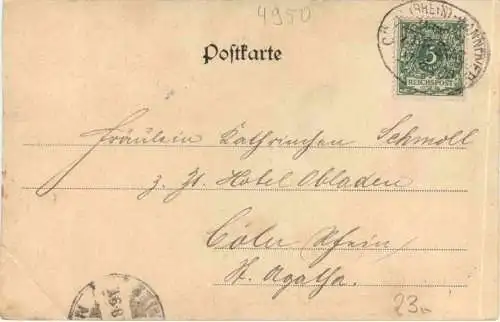 4950
Postkarte
CÖLN (RHEIN)-HANNOVER
5
REICHSPOST
Fräulein Kathrinchen Schmoll
z. Zt. Hotel Obladen
Cöln Rhein
St. Agatha.
23